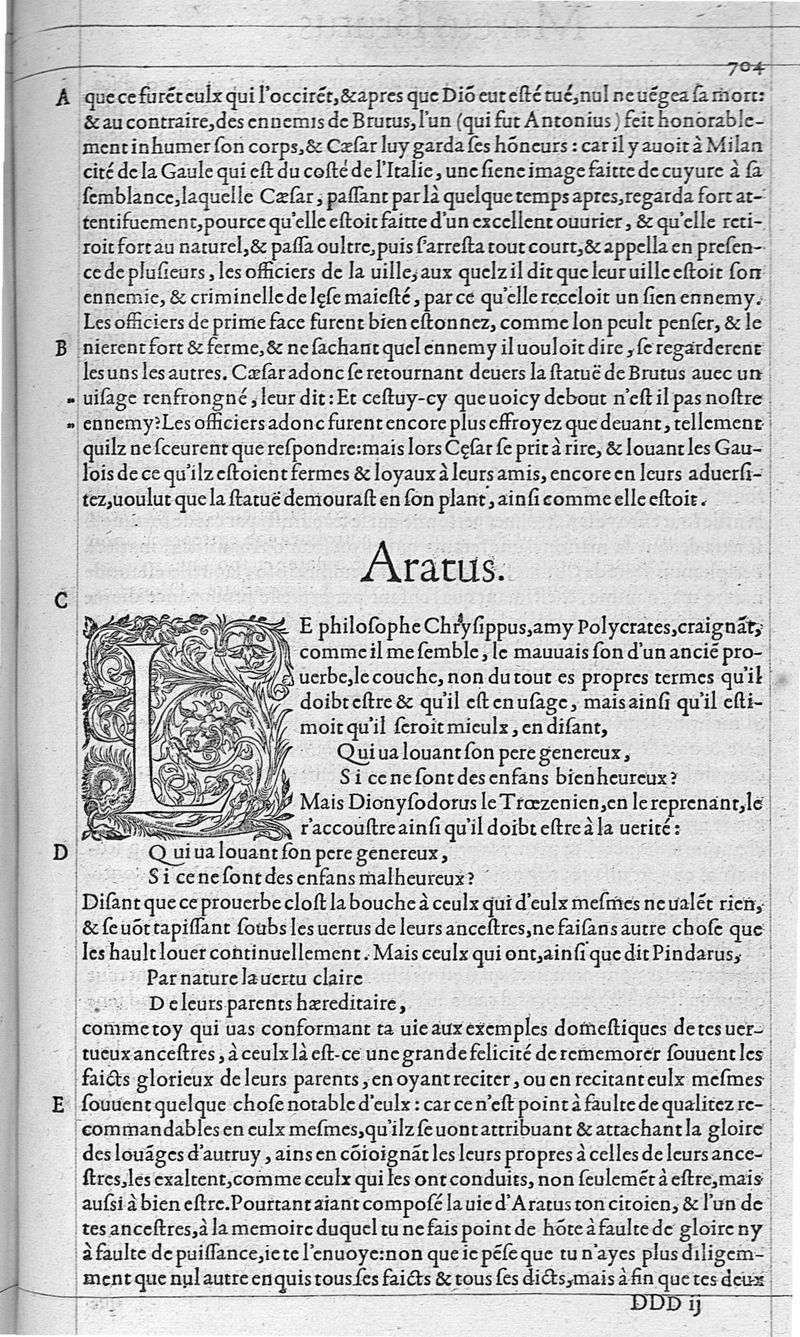 704
A que ce furẽt eulx qui l'occirẽt, & apres que Diõ eut esté tué, nul ne uẽgea sa mort:
& au contraire, des ennemis de Brutus, l'un (qui fut Antonius) feit honorable-
ment inhumer son corps, & Cæsar luy garda ses hõneurs : car il y auoit à Milan
cité de la Gaule qui est du costé de l'Italie, une siene image faitte de cuyure à sa
semblance, laquelle Cæsar, passant par là quelque temps apres, regarda fort at-
tentifuement, pource qu'elle estoit faitte d'un excellent ouurier, & qu'elle reti-
roit fort au naturel, & passa oultre, puis s'arresta tout court, & appella en presen-
ce de plusieurs, les officiers de la uille, aux quelz il dit que leur uille estoit son
ennemie, & criminelle de lęse maiesté, par ce qu'elle receloit un sien ennemy.
Les officiers de prime face furent bien estonnez, comme lon peult penser, & le
B nierent fort & ferme, & ne sachant quel ennemy il uouloit dire, se regarderent
les uns les autres. Cæsar adonc se retournant deuers la statuë de Brutus auec un
„ uisage renfrongné, leur dit : Et cestuy-cy que uoicy debout n'est il pas nostre
„ ennemy? Les officiers adonc furent encore plus effroyez que deuant, tellement
quilz ne sceurent que respondre: mais lors Cęsar se prit à rire, & louant les Gau-
lois de ce qu'ilz estoient fermes & loyaux à leurs amis, encore en leurs aduersi-
tez, uoulut que la statuë demourast en son plant, ainsi comme elle estoit.
Aratus.
C
LE philosophe Chrysippus, amy Polycrates, craignãt,
comme il me semble, le mauuais son d'un anciẽ pro-
uerbe, le couche, non du tout es propres termes qu'il
doibt estre & qu'il est en usage, mais ainsi qu'il esti-
moit qu'il seroit mieulx, en disant,
Qui ua louant son pere genereux,
Si ce ne sont des enfans bienheureux?
Mais Dionysodorus le Trœzenien, en le reprenant, le
r'accoustre ainsi qu'il doibt estre à la uerité :
D Qui ua louant son pere genereux,
Si ce ne sont des enfans malheureux?
Disant que ce prouerbe clost la bouche à ceulx qui d'eulx mesmes ne ualẽt rien,
& se uõt tapissant soubs les uertus de leurs ancestres, ne faisans autre chose que
les hault louer continuellement. Mais ceulx qui ont, ainsi que dit Pindarus,
Par nature la uertu claire
De leurs parents hæreditaire,
comme toy qui uas conformant ta uie aux exemples domestiques de tes uer-
tueux ancestres, à ceulx là est-ce une grande felicité de rememorer souuent les
faicts glorieux de leurs parents, en oyant reciter, ou en recitant eulx mesmes
E souuent quelque chose notable d'eulx : car ce n'est point à faulte de qualitez re-
commandables en eulx mesmes, qu'ilz se uont attribuant & attachant la gloire
des louãges d'autruy, ains en cõioignãt les leurs propres à celles de leurs ance-
stres, les exaltent, comme ceulx qui les ont conduits, non seulemẽt à estre, mais
aussi à bien estre. Pourtant aiant composé la uie d'Aratus ton citoien, & l'un de
tes ancestres, à la memoire duquel tu ne fais point de hõte à faulte de gloire ny
à faulte de puissance, ie te l'enuoye: non que ie pẽse que tu n'ayes plus diligem-
ment que nul autre enquis tous ses faicts & tous ses dicts, mais à fin que tes deux
DDD ij